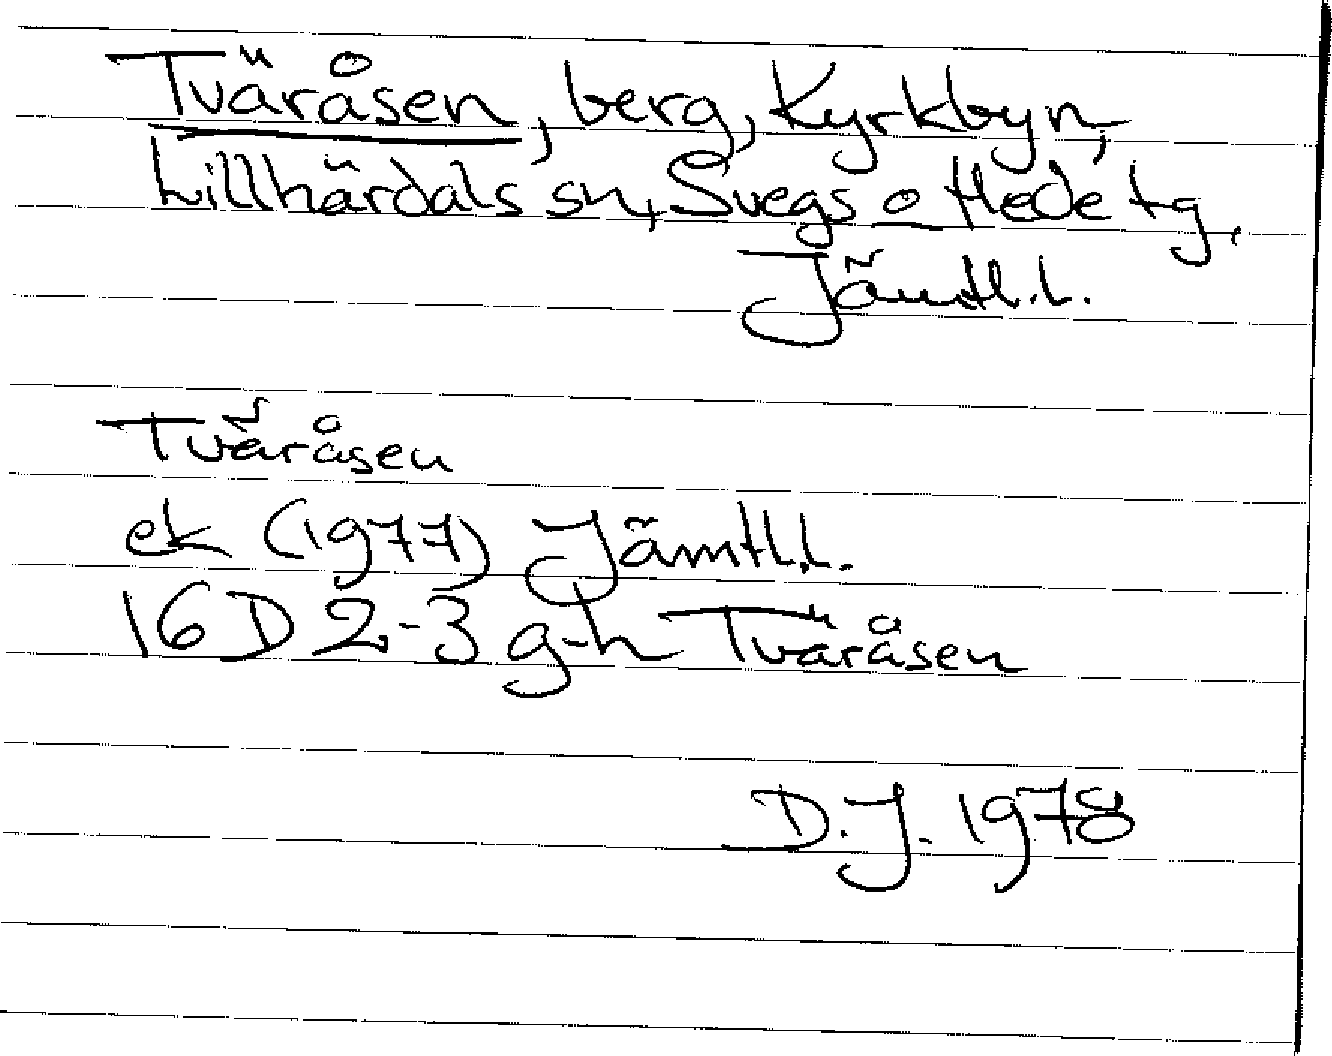 Tväråsen, berg, Kyrkbyn,
Lillhärdals sn, Svegs o Hede tg,
Jämtl.l.
Tväråsen
ek (1977) Jämtl.l.
16D 2-3 g-h Tväråsen
D.J. 1978